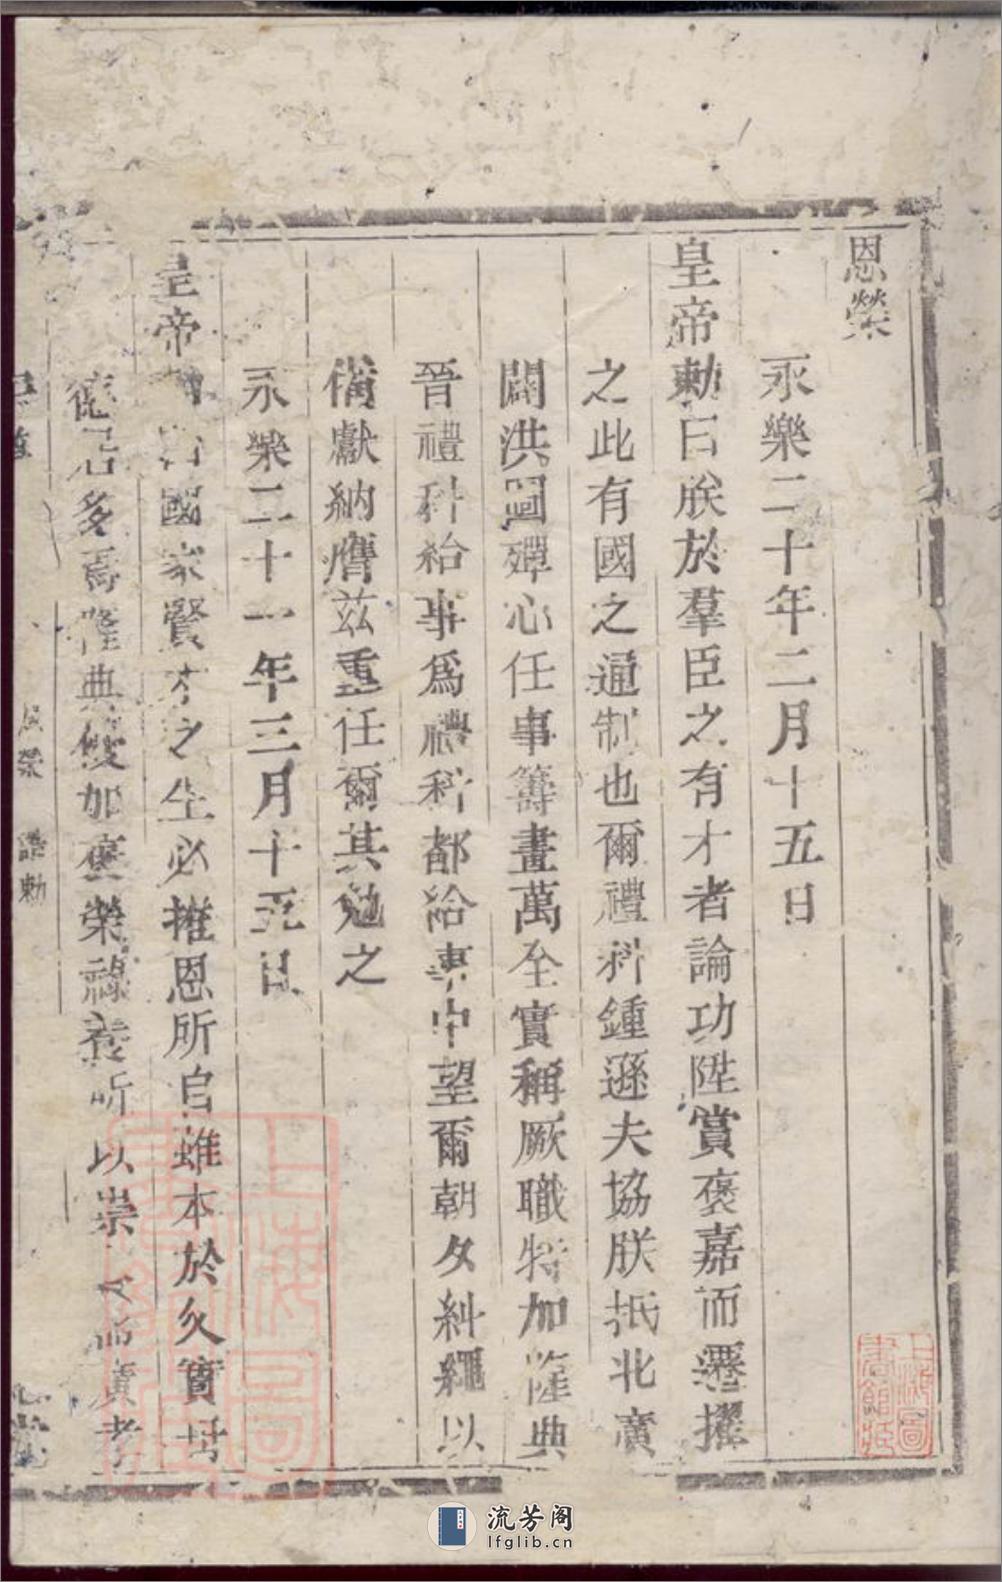 恩榮
永樂二十年二月十五日
皇帝勅曰朕於羣臣之有才者論功陞賞褒嘉而遷擢
之此有國之通制也爾禮科鍾遜夫協朕抵北廣
闢洪圖殫心任事籌畫萬全實稱厥職特加隆典
晉禮科給事爲禮科都給事中望爾朝夕糾繩以
備獻納膺兹重任爾其勉之
永樂二十一年三月十五日
皇帝 曰國家賢才之生必推恩所自雖本於父實母
德居多焉隆典優加褒榮祿養所以崇 而廣孝
恩榮 誥勅
上海圖書館藏
上海圖書館藏
流芳阁
lfglib.cn